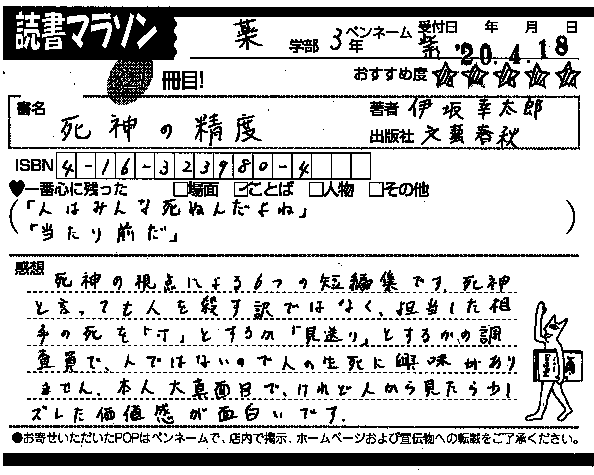 読書マラソン
薬 学部 3年 ペンネーム 紫 受付日 年 月 日 '20.4.18
冊目! おすすめ度 ☆☆☆☆☆
書名 死神の精度 著者 伊坂幸太郎
出版社 文藝春秋
ISBN 4-16-323980-4
♥一番心に残った □場面 ☑ことば □人物 □その他
(「人はみんな死ぬんだよね」
「当たり前だ」)
感想 死神の視点による6つの短編集です。死神
と言っても人を殺す訳ではなく、担当した相
手の死を「可」とするか「見送り」とするかの調
査員で、人ではないので人の生死に興味があり
ません。本人大真面目で、けれど人から見たら少し
ズレた価値感が面白いです。
●お寄せいただいたPOPはペンネームで、店内で掲示、ホームページおよび宣伝物への転載をご了承ください。